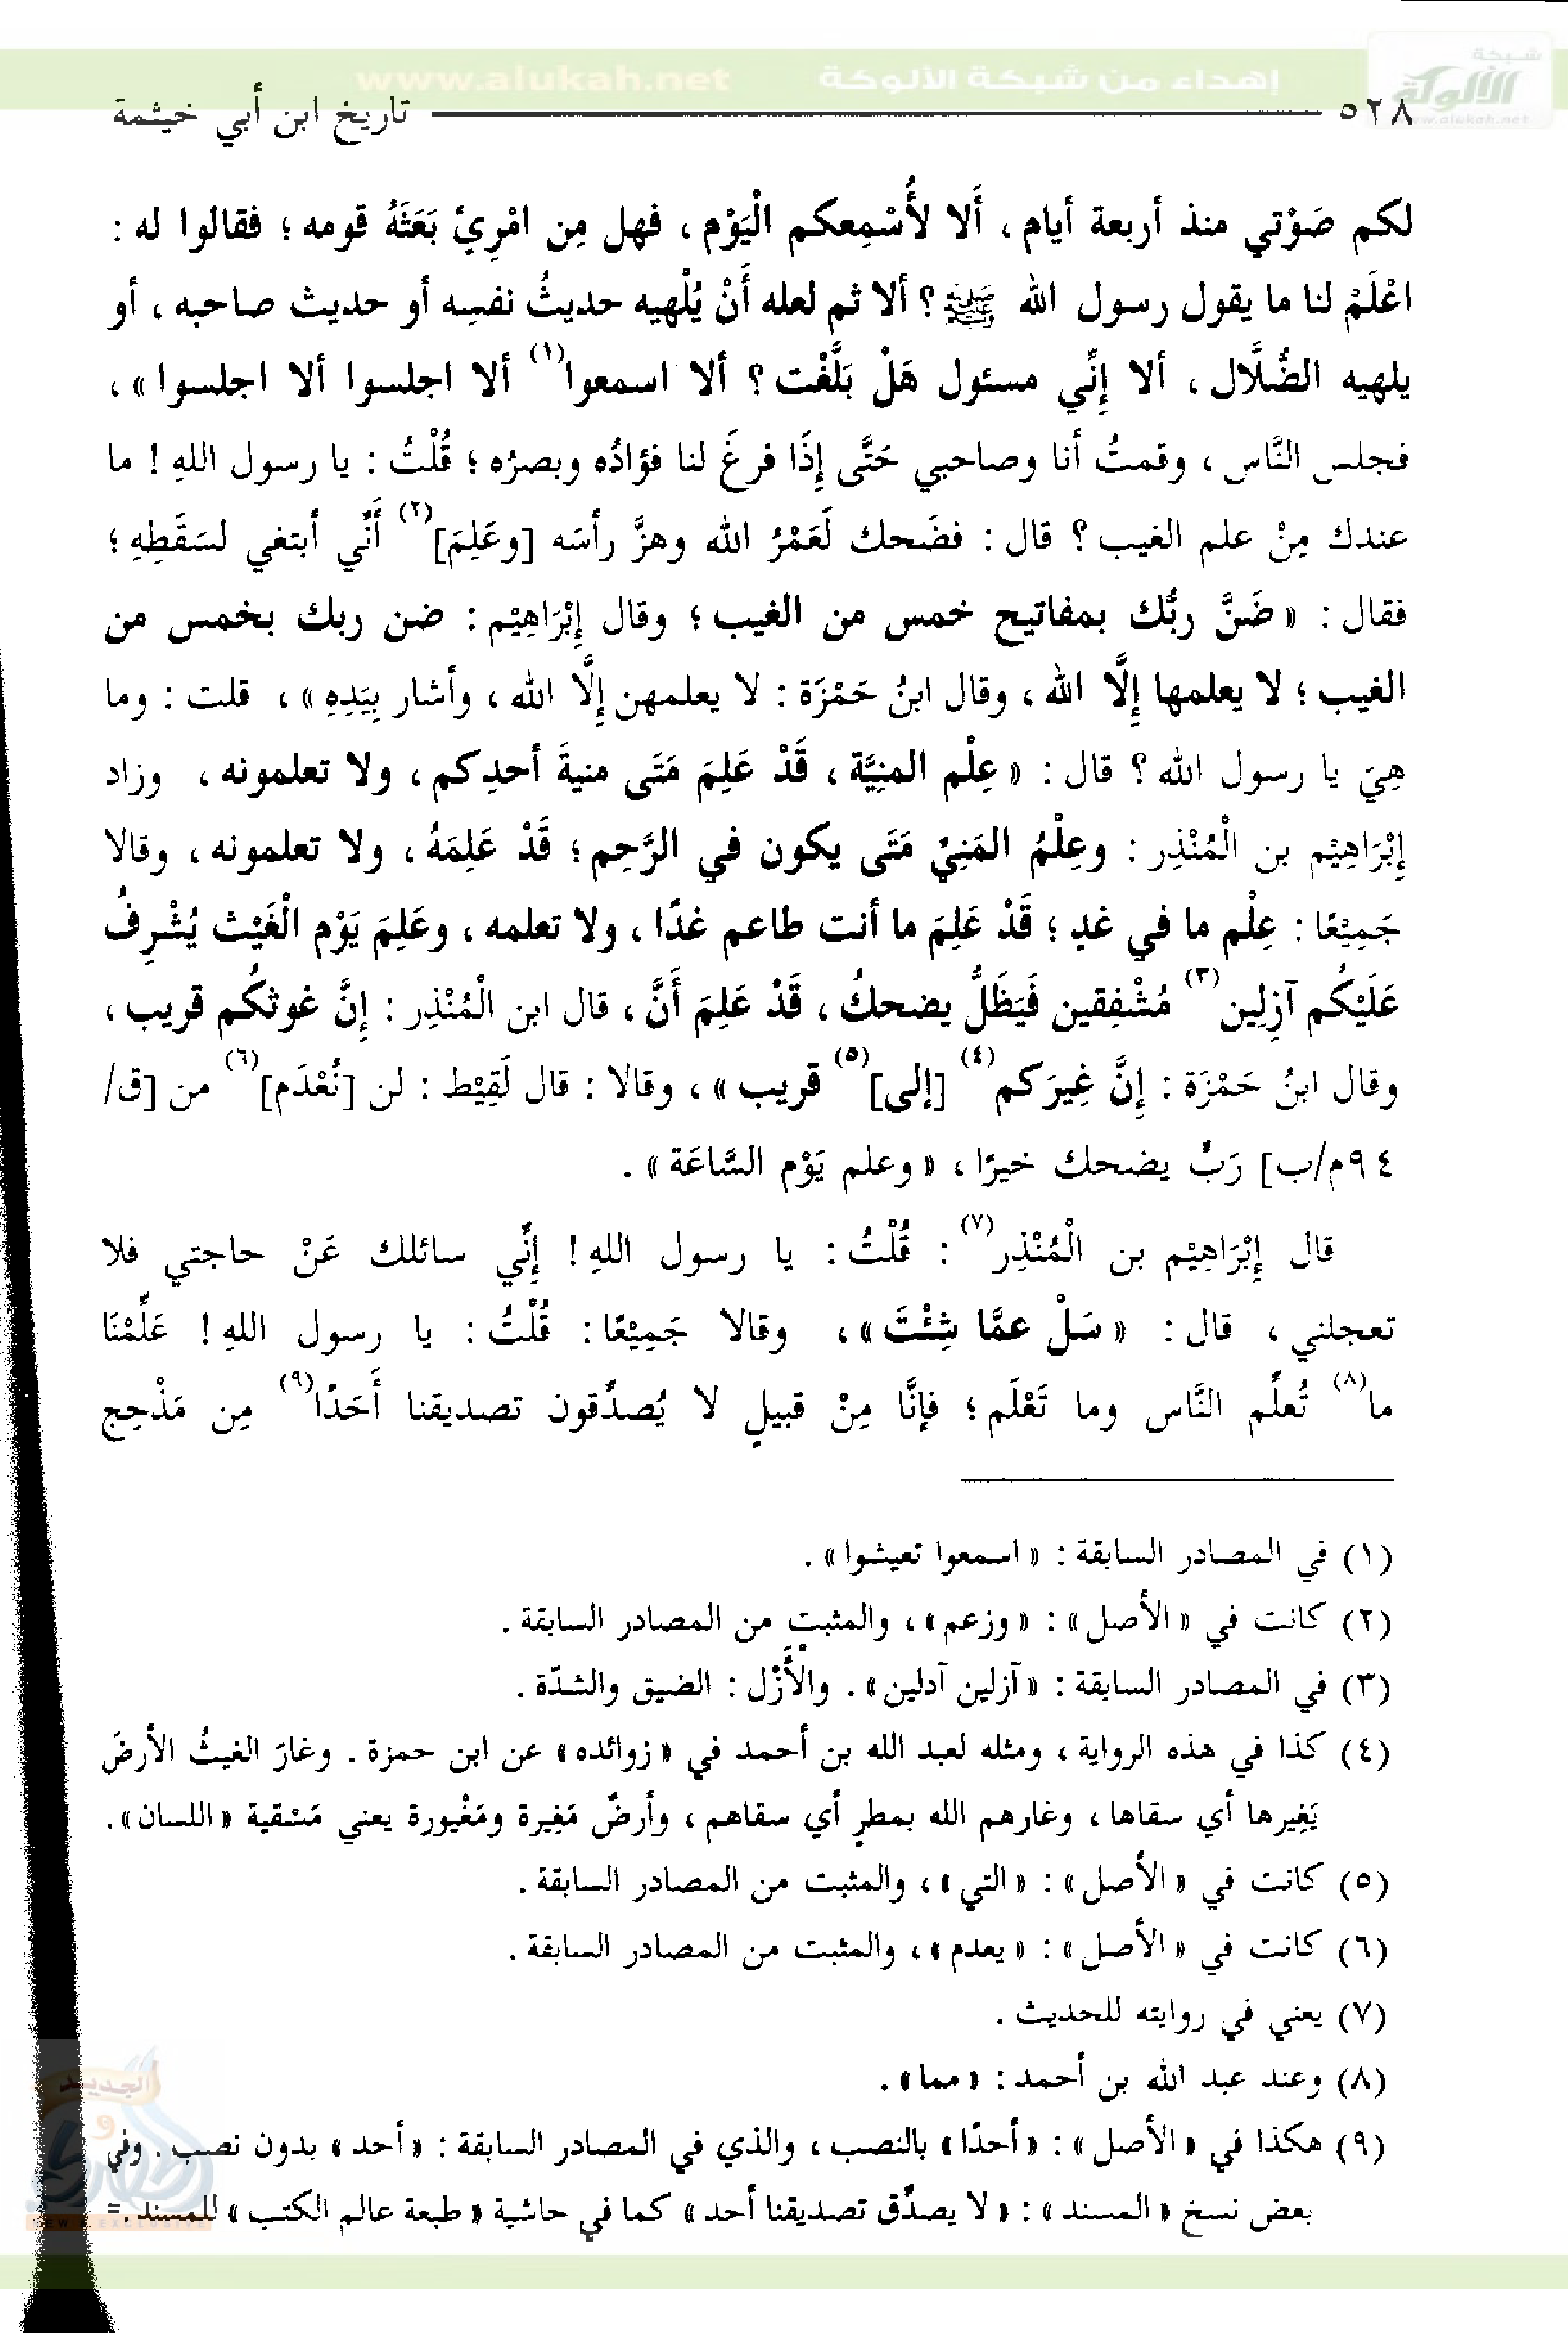 شبكة
الألوكة
www.alukah.net
إهداء من شبكة الألوكة
www.alukah.net
٥٢٨ تاريخ ابن أبي خيثمة
لكم صَوْتي منذ أربعة أيام ، أَلا لأُسْمِعكم الْيَوْم ، فهل مِن امْرِئٍ بَعَثَهُ قومه ؛ فقالوا له :
اعْلَمْ لنا ما يقول رسول الله ﷺ ؟ ألا ثم لعله أَنْ يُلْهيه حديثُ نفسِه أو حديث صاحبه ، أو
يلهيه الضُّلَّال ، ألا إِنِّي مسئول هَلْ بَلَّغْت ؟ ألا اسمعوا(١) ألا اجلسوا ألا اجلسوا » ،
فجلس النَّاس ، وقمتُ أنا وصاحبي حَتَّى إِذَا فرغَ لنا فؤادُه وبصرُه ؛ قُلْتُ : يا رسول اللهِ ! ما
عندك مِنْ علم الغيب ؟ قال : فضَحك لَعَمْرُ الله وهزَّ رأسَه [وعَلِمَ](٢) أَنِّي أبتغي لسَقَطِهِ ؛
فقال : « ضَنَّ ربُّك بمفاتيح خمس من الغيب ؛ وقال إِبْرَاهِيْم : ضن ربك بخمس من
الغيب ؛ لا يعلمها إِلَّا الله ، وقال ابنُ حَمْزَة : لا يعلمهن إِلَّا الله ، وأشار بِيَدِهِ » ، قلت : وما
هِيَ يا رسول الله ؟ قال : « عِلْم المنِيَّة ، قَدْ عَلِمَ مَتَى منيةَ أحدِكم ، ولا تعلمونه ، وزاد
إِبْرَاهِيْم بن الْمُنْذِر : وعِلْمُ المَنِيْ مَتَى يكون في الرَّحِم ؛ قَدْ عَلِمَهُ ، ولا تعلمونه ، وقالا
جَمِيْعًا : عِلْم ما في غدٍ ؛ قَدْ عَلِمَ ما أنت طاعم غدًا ، ولا تعلمه ، وعَلِمَ يَوْم الْغَيْث يُشْرِفُ
عَلَيْكُم آزِلِين(٣) مُشْفِقين فَيَظَلُّ يضحكُ ، قَدْ عَلِمَ أَنَّ ، قال ابن الْمُنْذِر : إِنَّ غوثكُم قريب ،
وقال ابنُ حَمْزَة : إِنَّ غِيرَكم(٤) [إلى](٥) قريب » ، وقالا : قال لَقِيْط : لن [نُعْدَم](٦) من [ق/
٩٤م/ب] رَبٍّ يضحك خيرًا ، « وعلم يَوْم السَّاعَة » .
قال إِبْرَاهِيْم بن الْمُنْذِر(٧) : قُلْتُ : يا رسول اللهِ ! إِنِّي سائلك عَنْ حاجتي فلا
تعجلني ، قال : « سَلْ عمَّا شِئْتَ » ، وقالا جَمِيْعًا : قُلْتُ : يا رسول اللهِ ! عَلِّمْنَا
ما(٨) تُعلِّم النَّاس وما تَعْلَم ؛ فإنَّا مِنْ قبيلٍ لا يُصدِّقون تصديقنا أَحَدًا(٩) مِن مَذْحِج
(١) في المصادر السابقة : « اسمعوا تعيشوا » .
(٢) كانت في « الأصل » : « وزعم » ، والمثبت من المصادر السابقة .
(٣) في المصادر السابقة : « آزلين آدلين » . والْأَزْل : الضيق والشدّة .
(٤) كذا في هذه الرواية ، ومثله لعبد الله بن أحمد في « زوائده » عن ابن حمزة . وغارَ الغيثُ الأرضَ
يَغِيرها أي سقاها ، وغارهم الله بمطرٍ أي سقاهم ، وأرضٌ مَغِيرة ومَغْيورة يعني مَسْقية « اللسان » .
(٥) كانت في « الأصل » : « التي » ، والمثبت من المصادر السابقة .
(٦) كانت في « الأصل » : « يعدم » ، والمثبت من المصادر السابقة .
(٧) يعني في روايته للحديث .
(٨) وعند عبد الله بن أحمد : « مما » .
(٩) هكذا في « الأصل » : « أحدًا » بالنصب ، والذي في المصادر السابقة : « أحد » بدون نصب . وفي
بعض نسخ « المسند » : « لا يصدِّق تصديقنا أحد » كما في حاشية « طبعة عالم الكتب » للمسند .=